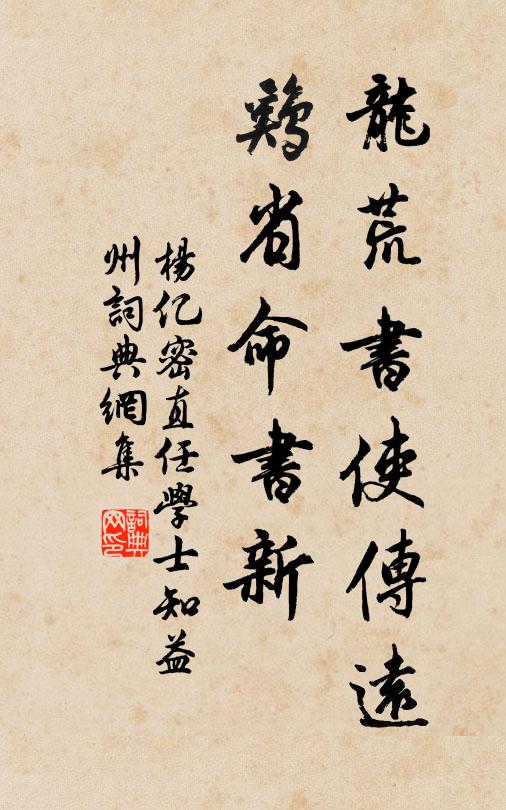 龍荒書使傳遠
鷄省命書新
楊億密直任學士知益
州詞典網集
詞典
网印